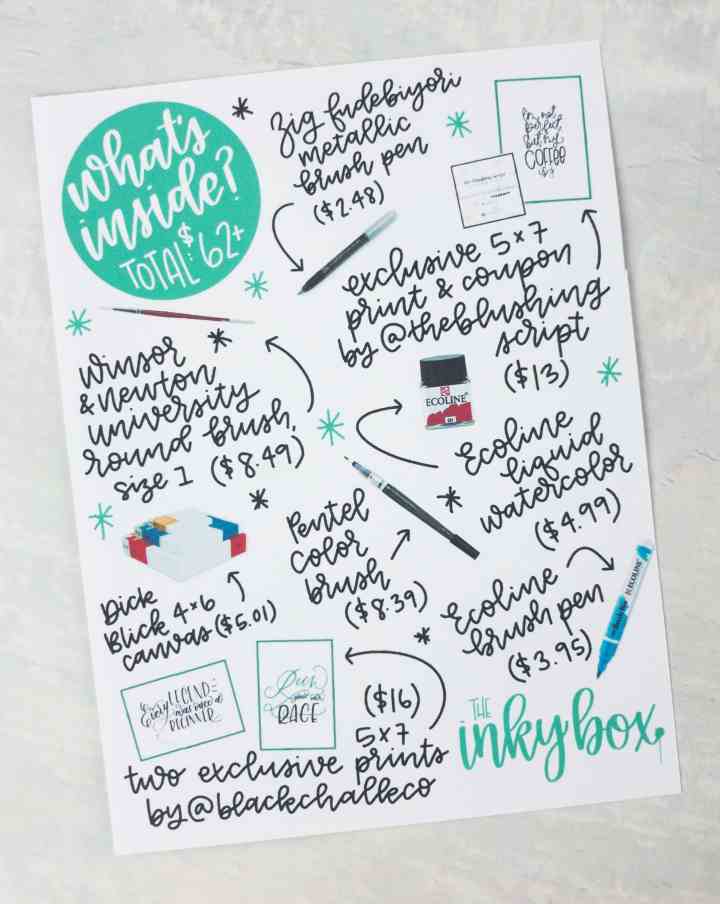 what's
inside?
TOTAL: $62+
zig fudebiyori
metallic
brush pen
($2.48)
I'm not
perfect,
but my
COFFEE
is
exclusive 5x7
print & coupon
by @theblushing
script
($13)
winsor
& newton
university
round brush,
size 1 ($8.49)
ECOLINE
Ecoline
liquid
watercolor
($4.99)
Pentel
color
brush
($8.39)
Dick
Blick 4x6
canvas ($5.01)
Ecoline
brush pen
($3.95)
ECOLINE
Every LEGEND
was once a
BEGINNER
Run
your own
RACE
($16)
5x7
two exclusive prints
by @blackchalkco
THE
inky box